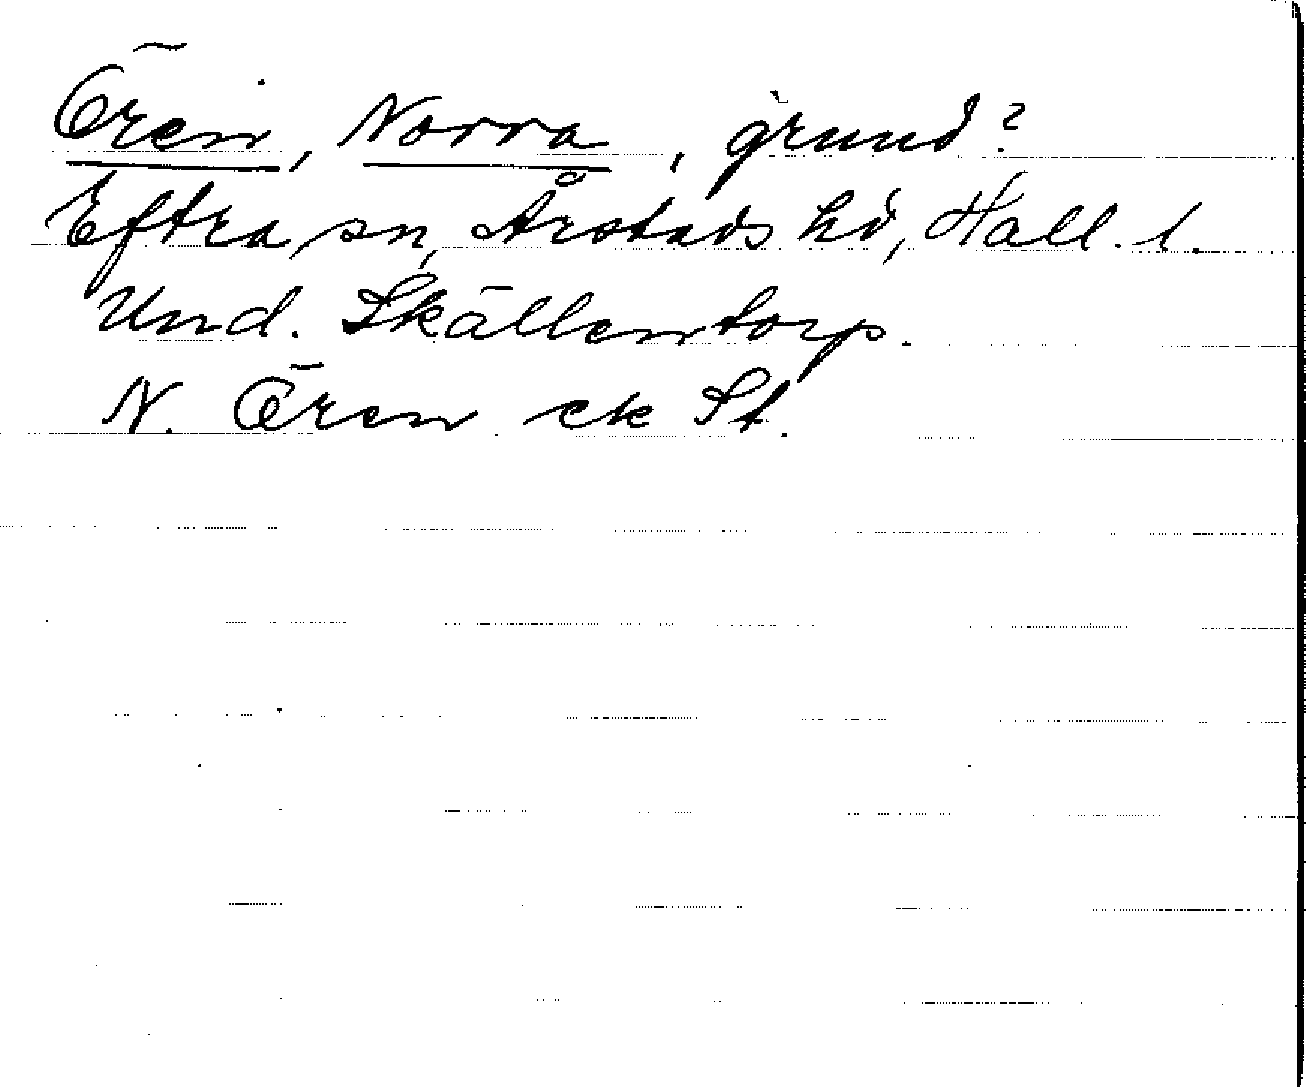 Ören, Norra, grund?
Eftra sn, Årstads hd, Hall. l.
Und. Skällentorp.
N. Ören ek St.